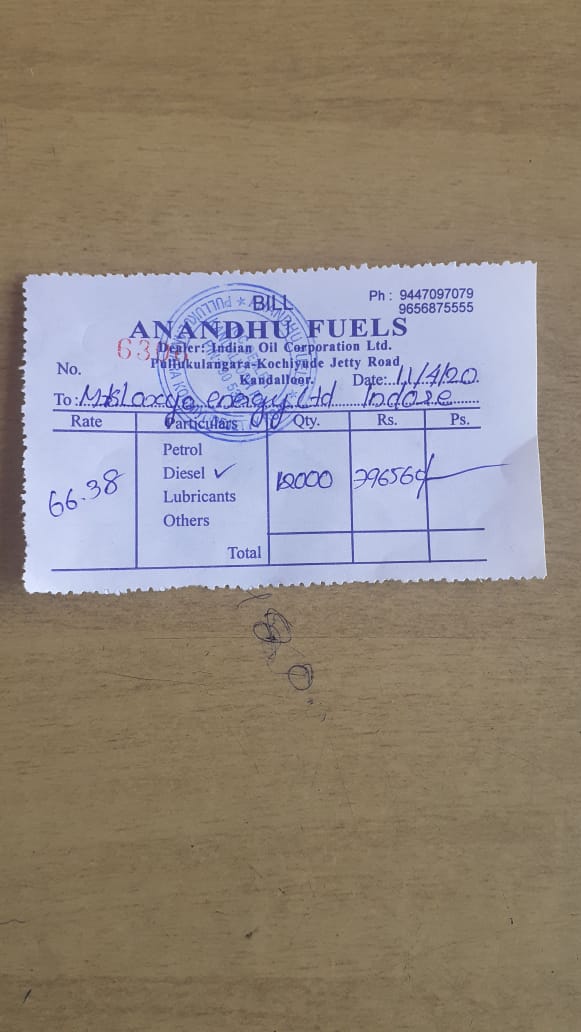 BILL
Ph : 9447097079
9656875555
ANANDHU FUELS
Dealer: Indian Oil Corporation Ltd.
Pullukulangara-Kochiyude Jetty Road
Kandalloor.
No.
Date: 11/4/20
To energy Ltd Indore
Rate Particulars Qty. Rs. Ps.
Petrol
66.38 Diesel ✓ 12000 796560/-
Lubricants
Others
Total